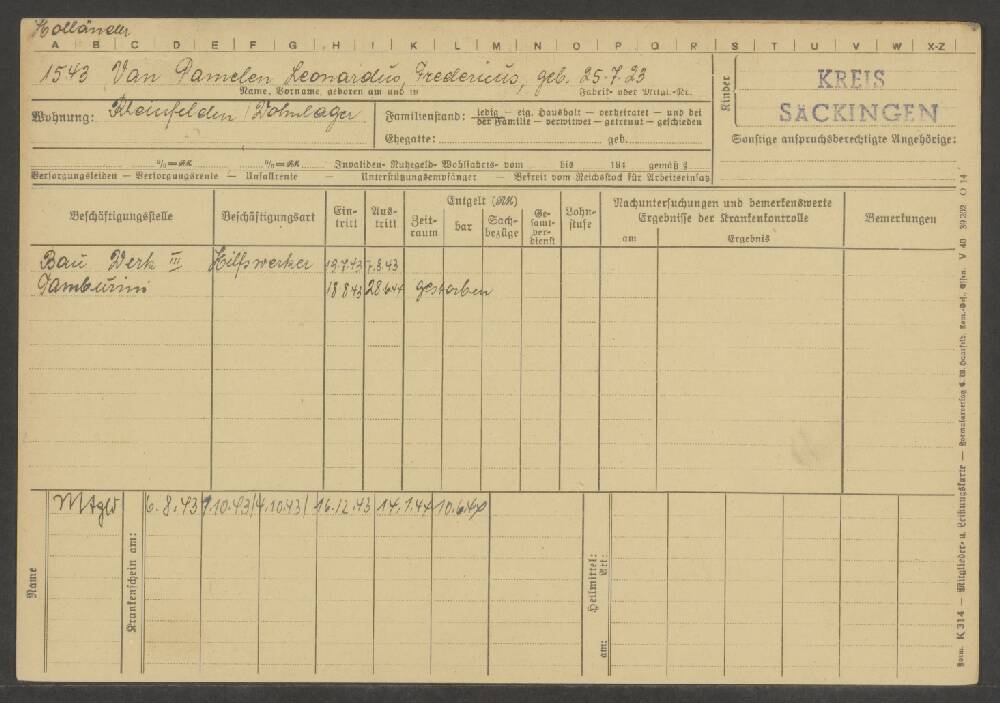 Holländer
A B C D E F G H I K L M N O P Q R S T U V W X-Z
1543 Van Pamelen, Leonardus, Fredericus, geb. 25.7.23
Name, Vorname, geboren am und in Fabrik- oder Mitgl.-Nr.
Wohnung: Rheinfelden / Wohnlager
Familienstand: ledig — eig. Haushalt — verheiratet — und bei
der Familie — verwitwet — getrennt — geschieden
Ehegatte: geb.
Kinder
KREIS
SÄCKINGEN
Sonstige anspruchsberechtigte Angehörige:
Invaliden- Ruhegeld- Wohlfahrts- vom bis 19 gemäß §
Versorgungsleiden — Versorgungsrente — Unfallrente — Unterstützungsempfänger — Befreit vom Reichsstock für Arbeitseinsatz
Beschäftigungsstelle
Beschäftigungsart
Ein-
tritt
Aus-
tritt
Entgelt (RM)
Zeit-
raum
bar
Sach-
bezüge
Ge-
samt-
ver-
dienst
Lohn-
stufe
Nachuntersuchungen und bemerkenswerte
Ergebnisse der Krankenkontrolle
am Ergebnis
Bemerkungen
Bau Werk III Hilfswerker 19.7.43 7.8.43
Tamburini 18.8.43 28.6.44 gestorben
Name
Mtgld
Krankenschein am:
6.8.43 9.10.43 14.10.43 16.12.43 14.1.44 10.6.44
Heilmittel:
Art:
am:
Form. K 314 — Mitglieder- u. Leistungskarte — Formularverlag V 40 39 202 O 14